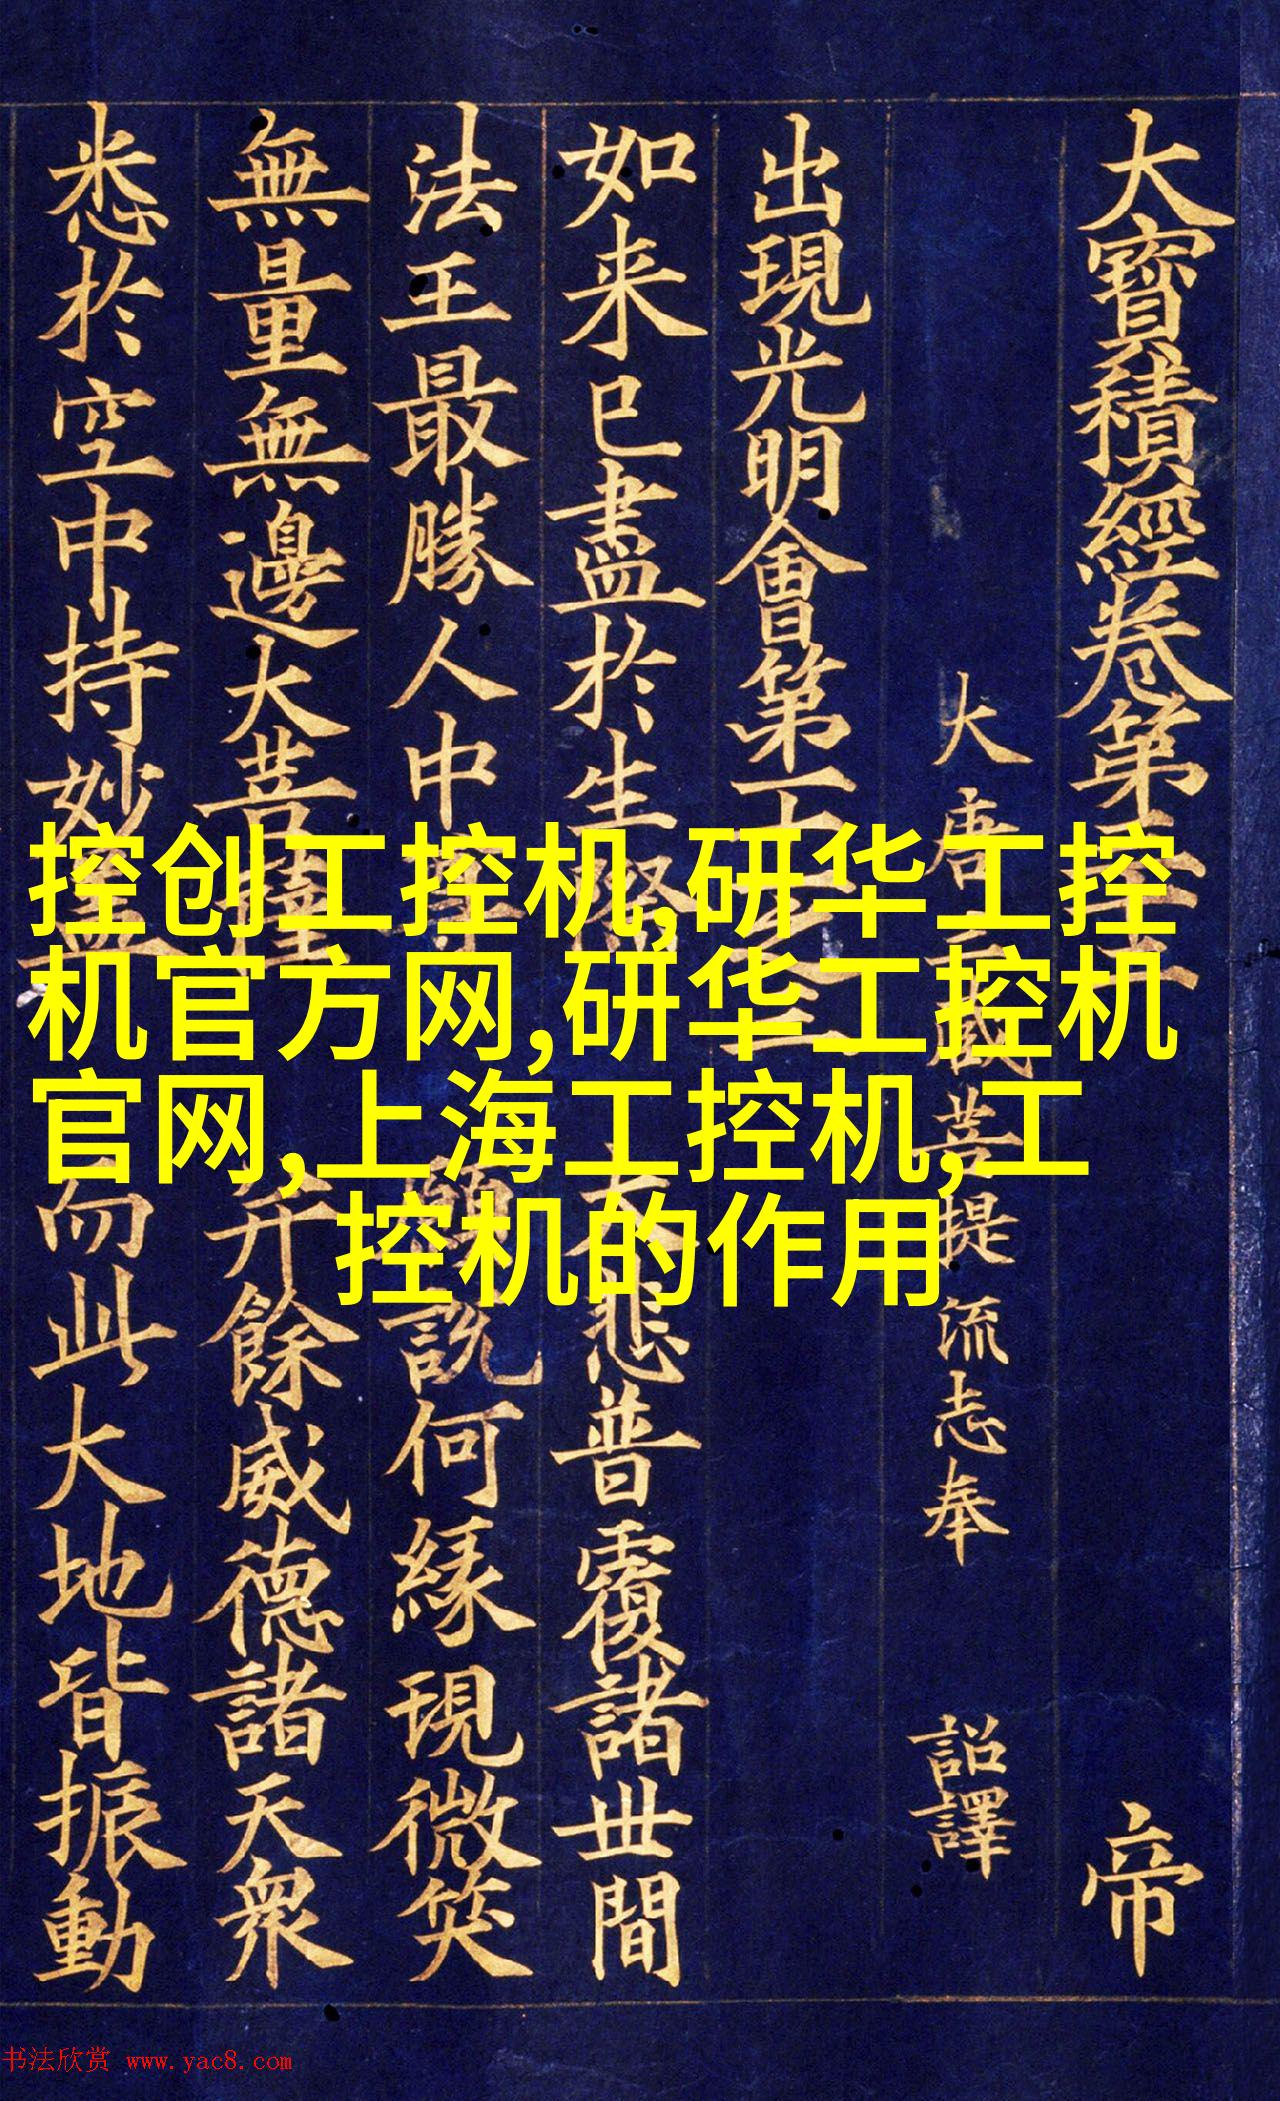 控创工控机,研华工控
机官方网,研华工控机
官网,上海工控机,工
控机的作用
大寶積經卷第 帝
大唐三藏菩提流志奉 詔譯
出現光明會第十一之三
如来已盡於生際 大悲普覆諸世間
法王最勝人中尊 願說何緣現微笑
無量無邊大菩薩 并餘威德諸天衆
悉於空中持妙蓋 而此大地皆振動
书法欣赏 www.yac8.com